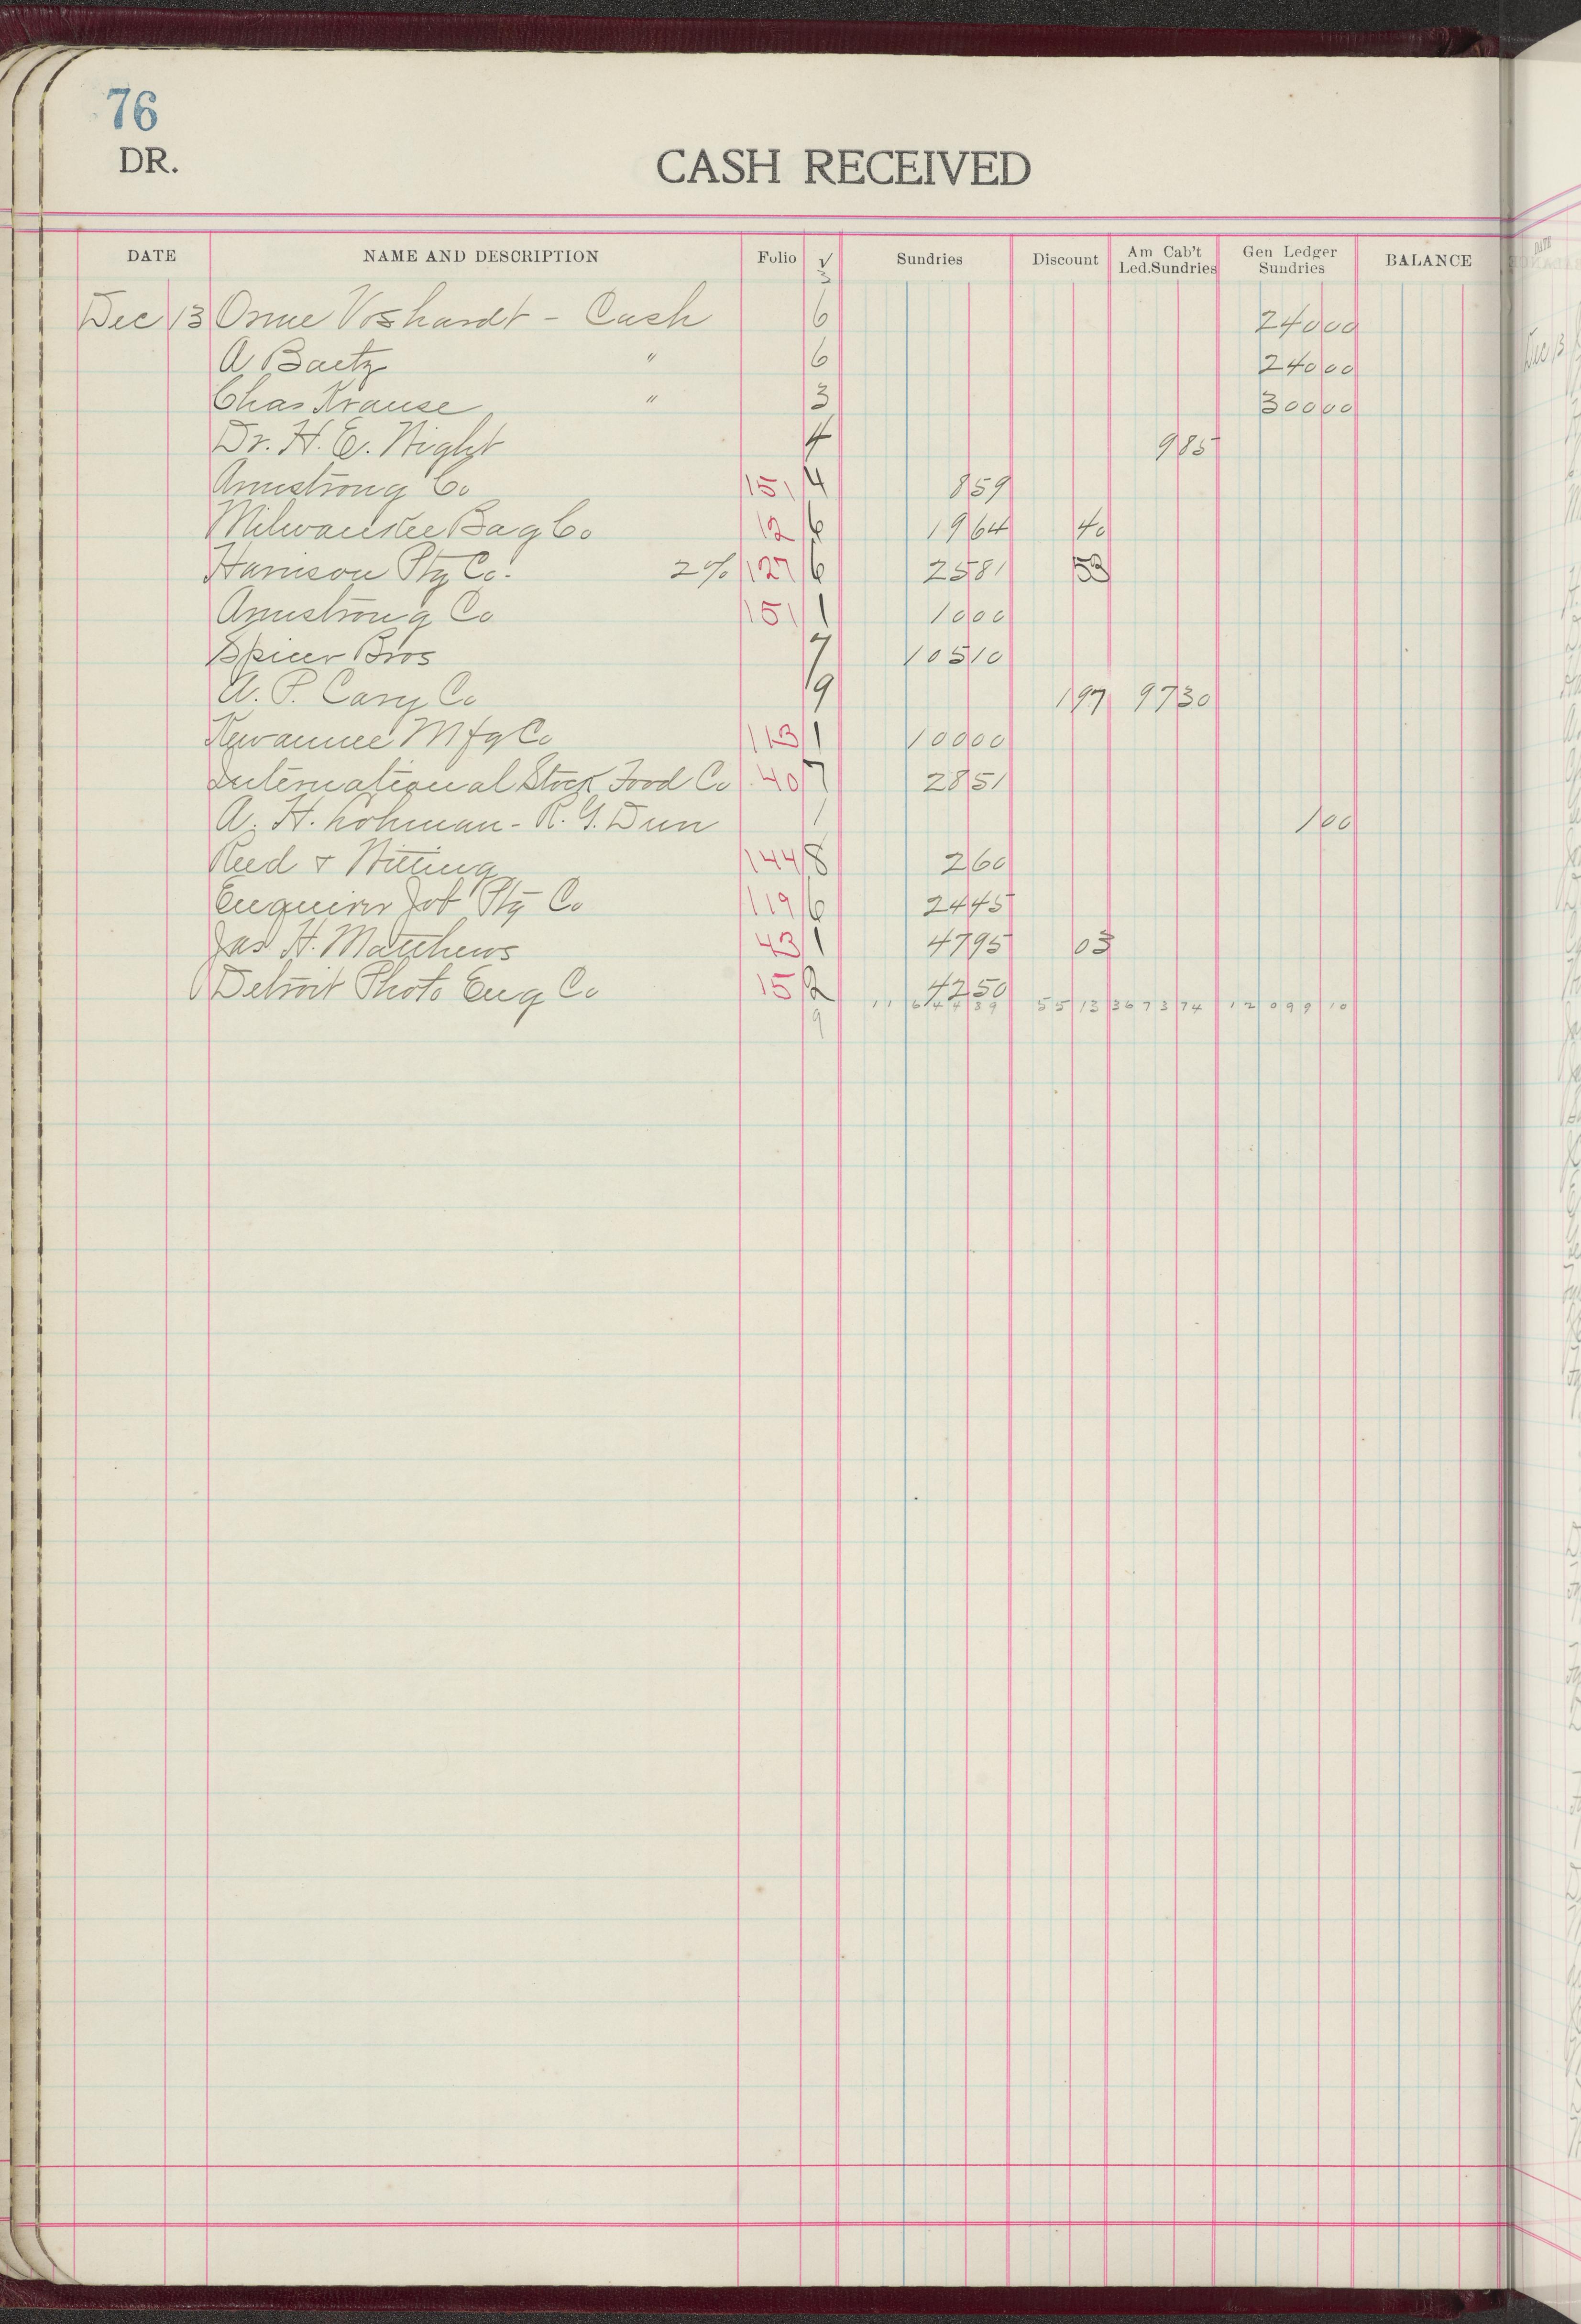 76
DR.
CASH RECEIVED
DATE NAME AND DESCRIPTION Folio √ Sundries Discount Am Cab't Led.Sundries Gen Ledger Sundries BALANCE
3
Dec 13 Orme Voshardt - Cash 6 240 00
A Baetz " 6 240 00
Chas Krause " 3 300 00
Dr. H. E. Night 4 9 85
Armstrong Co 151 4 8 59
Milwaukee Bag Co 12 6 19 64 40
Harrison Ptg Co. 2% 127 6 25 81 53
Armstrong Co 151 1 10 00
Spicer Bros 7 105 10
A. P. Cary Co 9 1 97 97 30
Kewaunee Mfg Co 113 1 100 00
International Stock Food Co 40 7 28 51
A. H. Lohman - R. G. Dun 1 1 00
Reed & Witting 144 8 2 60
Enquirer Job Ptg Co 119 6 24 45
Jas H. Matthews 43 1 47 95 03
Detroit Photo Eng Co 15 2 42 50
9 11 644 89 55 13 3673 74 12 099 10